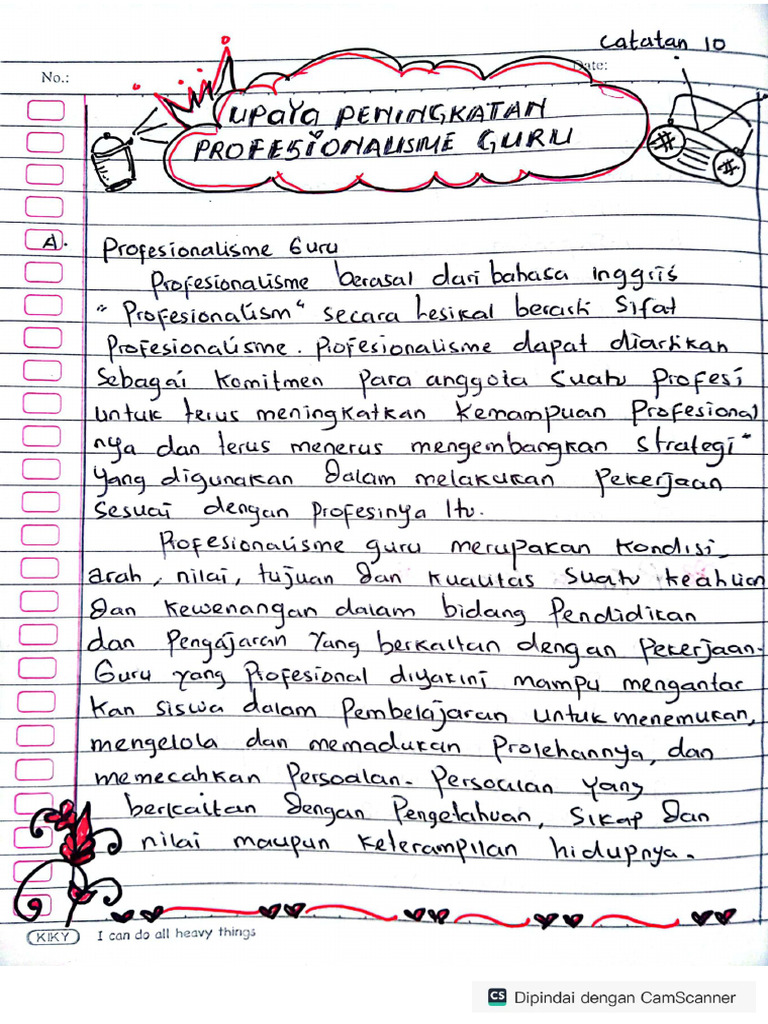 Catatan 10
No.:
Date:
UPAYA PENINGKATAN
PROFESIONALISME GURU
A. Profesionalisme Guru
Profesionalisme berasal dari bahasa inggris
"Profesionalism" secara lesikal berarti Sifat
Profesionalisme. Profesionalisme dapat diartikan
Sebagai komitmen para anggota suatu profesi
untuk terus meningkatkan kemampuan Profesional
nya dan terus menerus mengembangkan strategi"
yang digunakan dalam melakukan pekerjaan
Sesuai dengan profesinya Itu.
Profesionalisme guru merupakan kondisi,
arah, nilai, tujuan dan kualitas suatu keahlian
dan kewenangan dalam bidang Pendidikan
dan Pengajaran yang berkaitan dengan Pekerjaan.
Guru yang Profesional diyakini mampu mengantar
kan siswa dalam Pembelajaran untuk menemukan,
mengelola dan memadukan Prolehannya, dan
memecahkan Persoalan-Persoalan yang
berkaitan dengan Pengetahuan, Sikap dan
nilai maupun keterampilan hidupnya.
KIKY I can do all heavy things
CS Dipindai dengan CamScanner